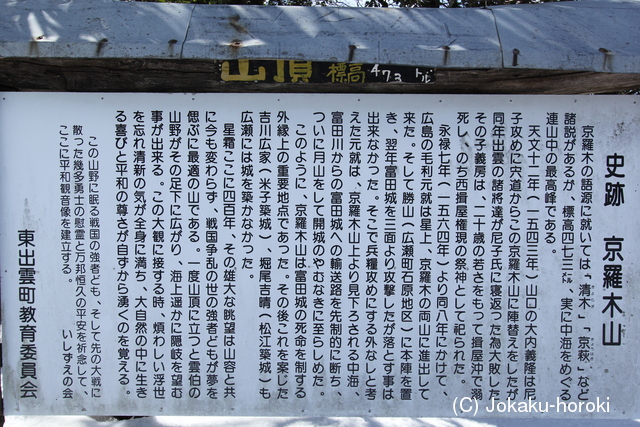 山頂 標高 473 トル
史跡 京羅木山
京羅木の語源に就いては、「清木」「京萩」など
諸説があるが、標高四七三㍍、実に中海をめぐる
連山中の最高峰である。
天文十二年(一五四三年)山口の大内義隆は尼
子攻めに宍道からこの京羅木山に陣替えをしたが
同年出雲の諸將達が尼子氏に寝返った為大敗した
その子義房は、二十歳の若さをもって揖屋沖で溺
死し、のち西揖屋権現の祭神として祀られた。
永禄七年(一五六四年)より同八年にかけて、
広島の毛利元就は星上、京羅木の両山に進出して
来た。そして勝山(広瀬町石原地区)に本陣を置
き、翌年富田城を三面より攻撃したが落とす事は
出来なかった。そこで兵糧攻めにする外なしと考
えた元就は、京羅木山上より見下ろされる中海、
富田川からの富田城への輸送路を先制的に断ち、
ついに月山をして開城のやむなきに至らしめた。
このように、京羅木山は富田城の死命を制する
外縁上の重要地点であった。その後これを案じた
吉川広家(米子築城)、堀尾吉晴(松江築城)も
広瀬には城を築かなかった。
星霜ここに四百年、その雄大な眺望は山容と共
に今も変わらず、戦国争乱の世の強者どもが夢を
偲ぶに最適の山である。一度山頂に立つと雲伯の
山野がその足下に広がり、海上遥かに隠岐を望む
事が出来る。この大観に接する時、煩わしい浮世
を忘れ清新の気が全身に満ち、大自然の中に生き
る喜びと平和の尊さが自ずから湧くのを覚える。
この山野に眠る戦国の強者ども、そして先の大戦に
散った幾多勇士の慰霊と万邦恒久の平安を祈念して、
ここに平和観音像を建立する。 いしずえの会
東出雲町教育委員会
(C) Jokaku-horoki